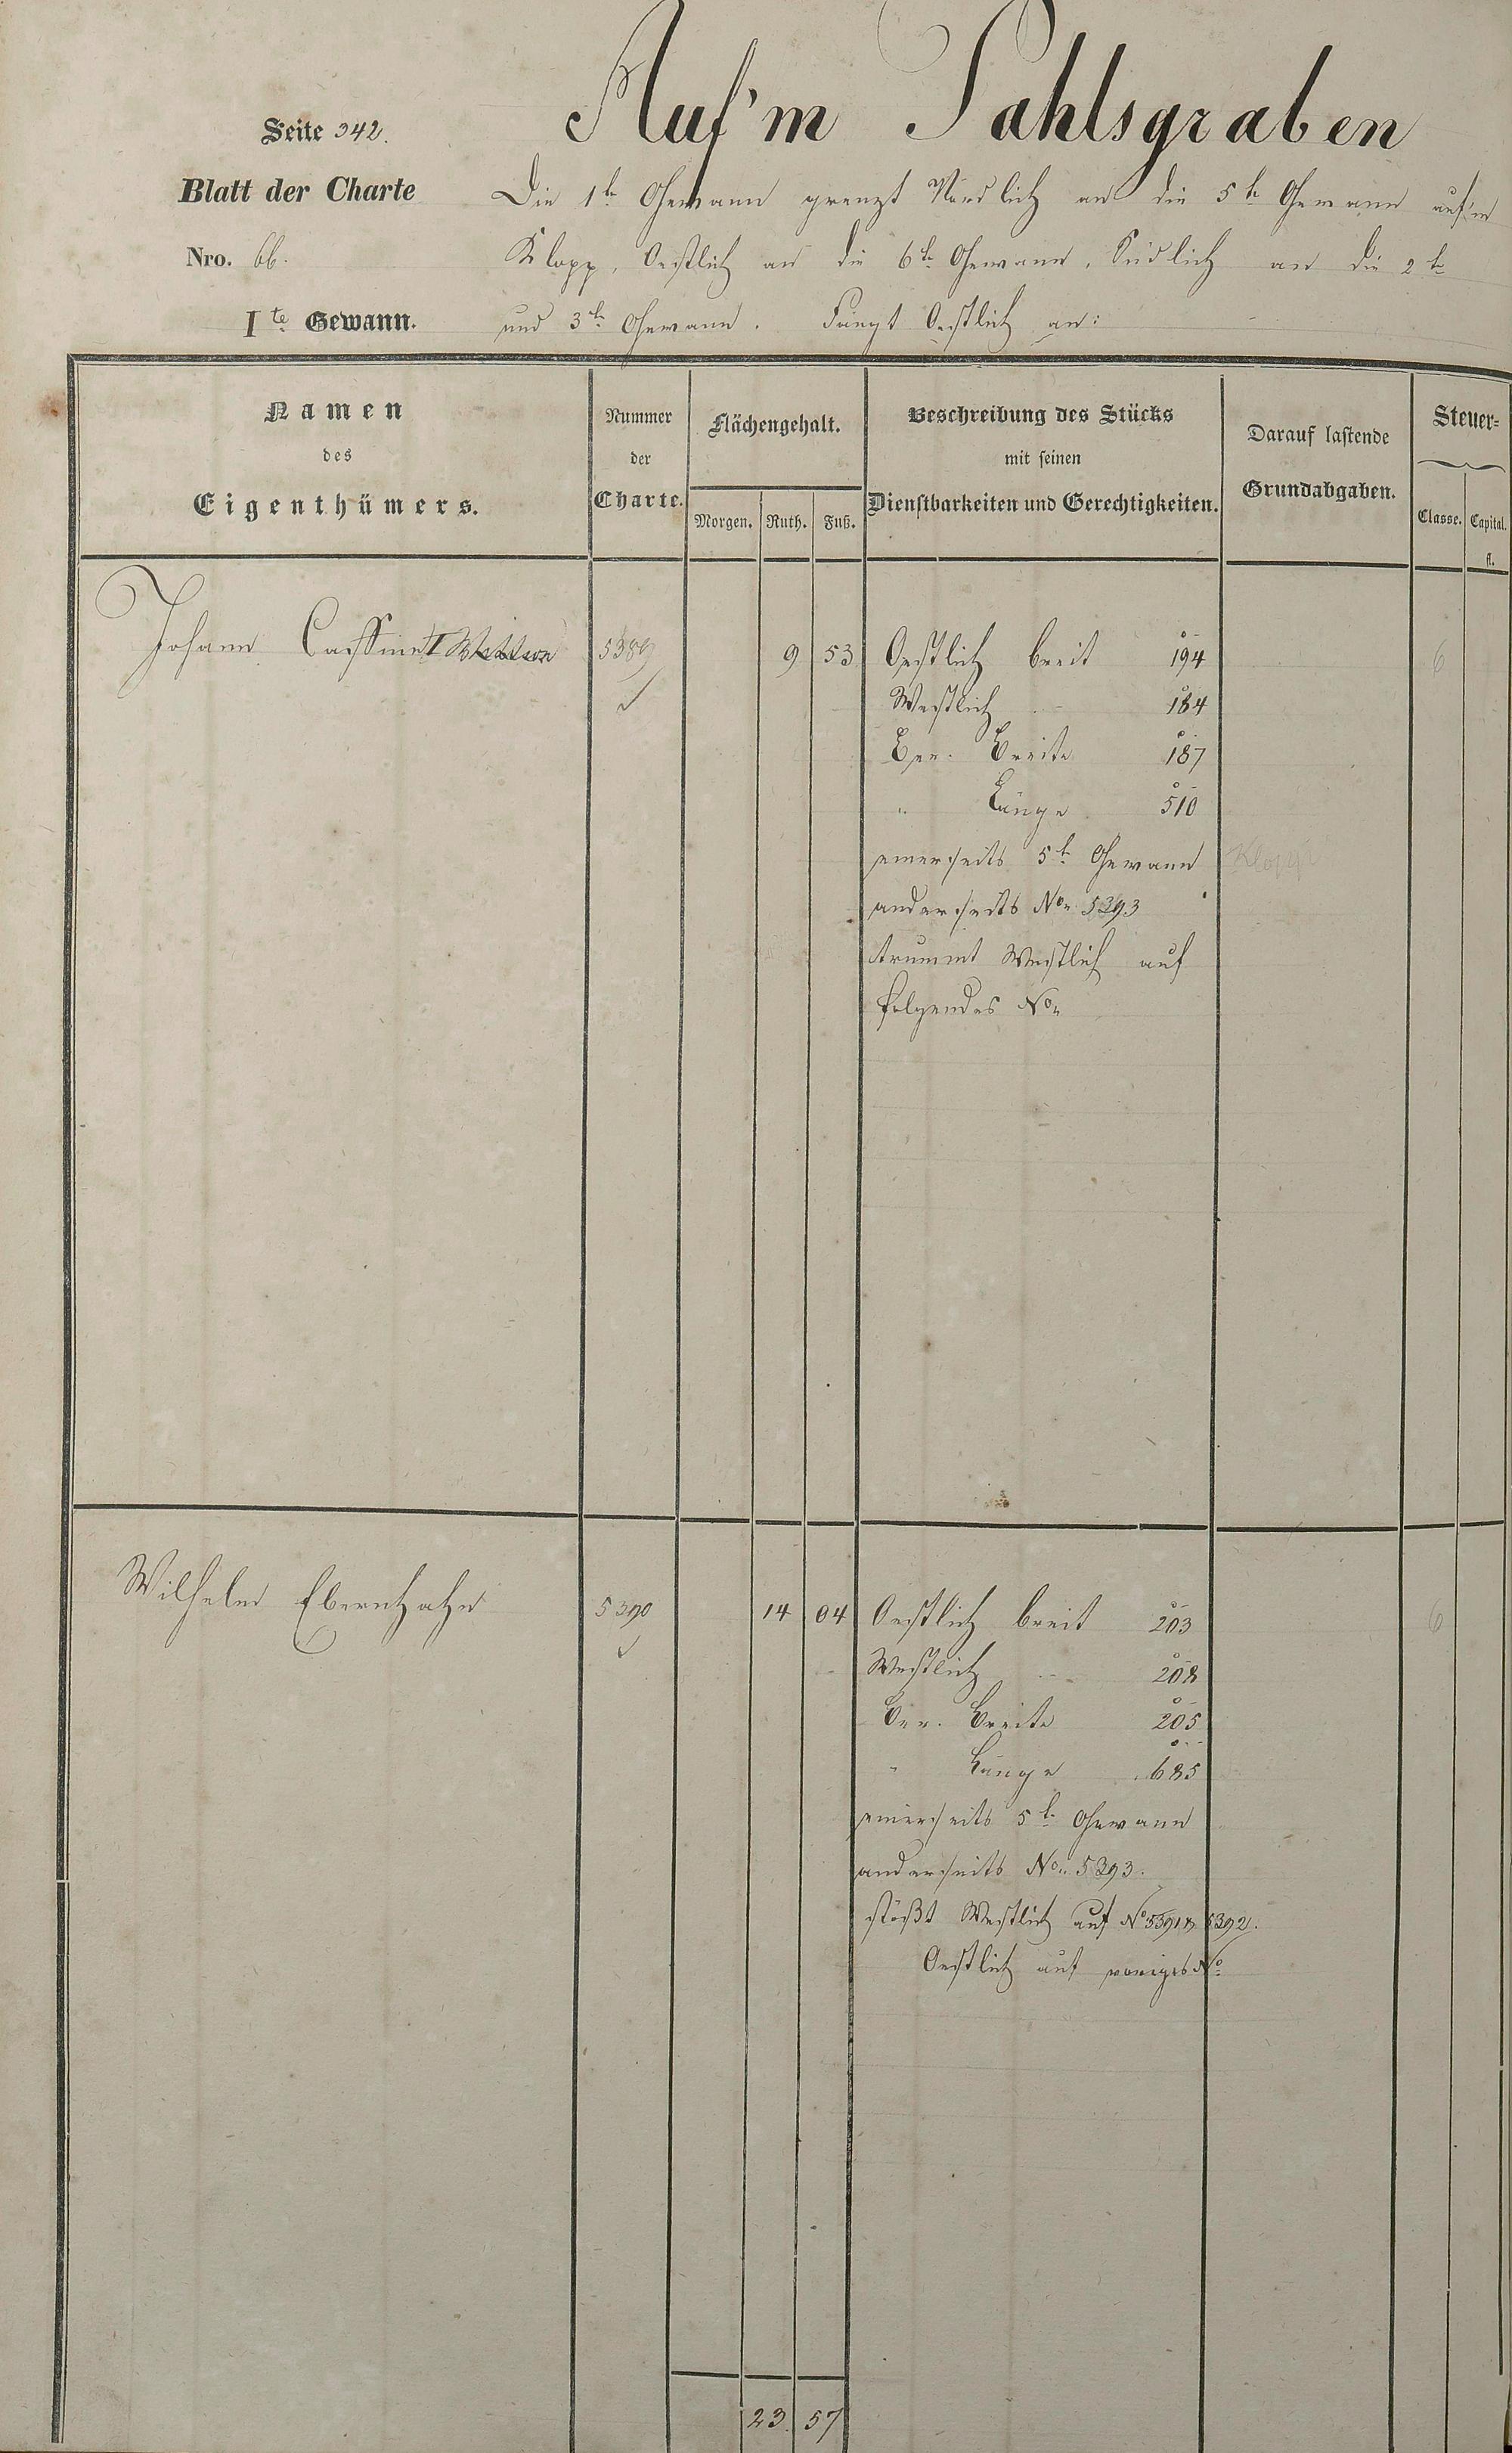 Auf'm Pahlsgraben
Seite 342.
Blatt der Charte
Nro. 66.
Ite Gewann.
Die 1te Gewann grenzt Nördlich an die 5te Gewann auf'm
Klopp, Oestlich an die 6te Gewann, Südlich an die 2te
und 3te Gewann. Fängt Oestlich an:
Namen des Eigenthümers.
Nummer der Charte.
Flächengehalt.
Morgen. Ruth. Fuß.
Beschreibung des Stücks
mit seinen
Dienstbarkeiten und Gerechtigkeiten.
Darauf lastende
Grundabgaben.
Steuer-
Classe. Capital.
fl.
Johann 5389 9 53 Oestlich breit 194 6
Westlich " 184
Ger. Breite 187
" Länge 510
einerseits 5te Gewann Klopp
anderseits No. 5393
Westlich auf
folgendes No.
Wilhelm 5390 14 04 Oestlich breit 203 6
Westlich " 208
Ger. Breite 205
" Länge 685
einerseits 5te Gewann
anderseits No. 5393.
stößt Westlich auf No 5391 & 5392.
Oestlich auf voriges No
23 57